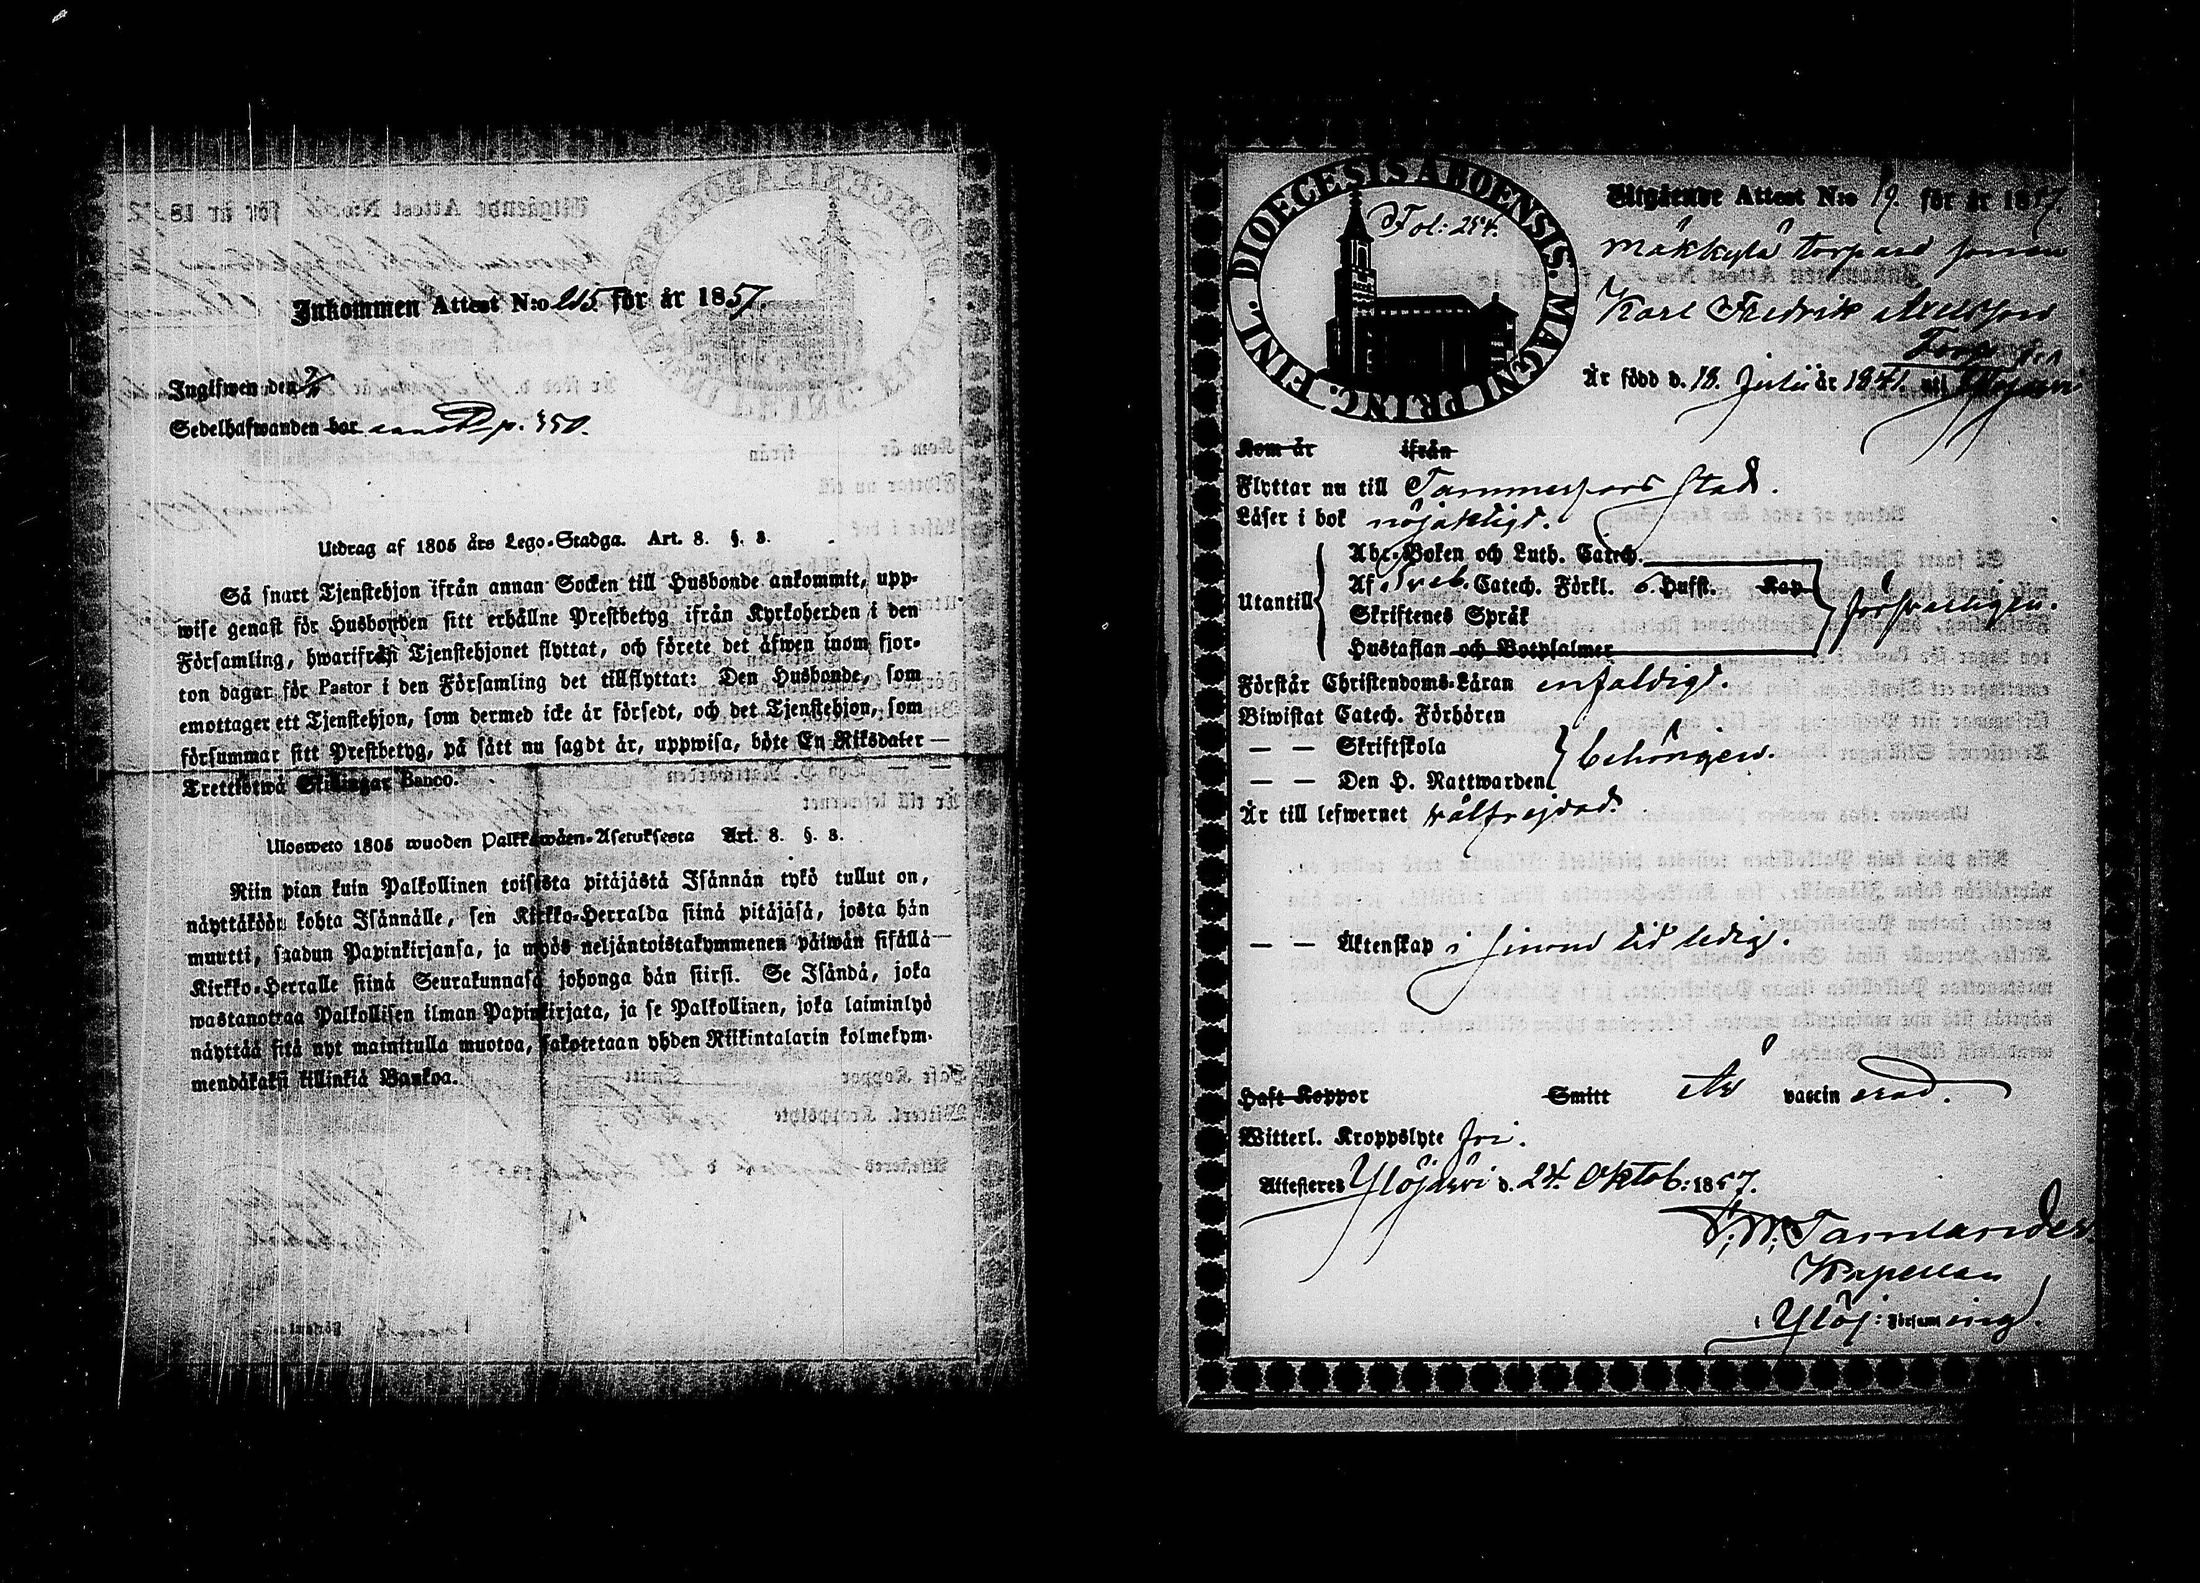 Inkommen Attest N:o 215 för år 1857.
Ingifwen den
Sedelhafwanden bor p. 350.
Utdrag af 1805 års Lego-Stadga. Art. 8. §. 3.
Så snart Tjenstehjon ifrån annan Socken till Husbonde ankommit, upp-
wise genast för Husbonden sitt erhållne Prestbetyg ifrån Kyrkoherden i den
Församling, hwarifrån Tjenstehjonet flyttat, och förete det äfwen inom fjor-
ton dagar för Pastor i den Församling det tillflyttat: Den Husbonde, som
emottager ett Tjenstehjon, som dermed icke är försedt, och det Tjenstehjon, som
försummar sitt Prestbetyg, på sätt nu sagdt är, uppwisa, böte En Riksdaler
Trettiotwå Skillingar Banco.
Ulosweto 1805 wuoden Palkkawäen-Asetuksesta Art. 8. §. 3.
Niin pian kuin Palkollinen toisesta pitäjästä Isännän tykö tullut on,
näyttäköön kohta Isännälle, sen Kirkko-Herralda siinä pitäjäsä, josta hän
muutti, saadun Papinkirjansa, ja myös neljäntoistakymmenen päiwän sisällä
Kirkko-Herralle siinä Seurakunnasa johonga hän siirsi. Se Isändä, joka
wastanottaa Palkollisen ilman Papinkirjata, ja se Palkollinen, joka laiminlyö
näyttää sitä nyt mainitulla muotoa, sakotetaan yhden Riikintalarin kolmekym-
mendäkaksi killinkiä Bankoa.
DIOECESIS ABOENSIS. MAGNI PRINC. FINL.
Fol: 254.
Utgående Attest N:o 19. för år 1857.
Mäkkylä torpare sonen
Karl Fredrik
Är född d. 18. Julii år 1841. uti Ylöjärvi
Kom år ifrån
Flyttar nu till Tammerfors stad.
Läser i bok nöjaktigt.
Utantill
Abc-Boken och Luth. Catech.
Af Sveb. Catech. Förkl. 6. Hufst. Kap
Skriftenes Språk
Hustaflan och Botpsalmer
försvarligen.
Förstår Christendoms-Läran enfaldigt.
Biwistat Catech. Förhören
— — Skriftskola
— — Den H. Nattwarden
behörigen.
Är till lefwernet välfrejdad.
— — Äktenskap i sinom tid ledig.
Haft Koppor Smitt Är vaccin erad.
Witterl. Kroppslyte fri.
Attesteres Ylöjärvi d. 24. Oktob: 1857.
Tamlander
Kapellan
i Ylöj: Församling.